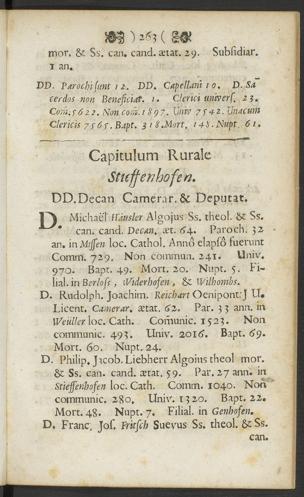 ) 263 (
mor. & Ss. can. cand. ætat. 29. Subsidiar.
1 an.
DD. Parochi sunt 12. DD. Capellani 10. D. Sa-
cerdos non Beneficiat. 1. Clerici univers. 23.
Com. 5622. Non com. 1897. Univ 7542. Unacum
Clericis 7565. Bapt. 318. Mort. 148. Nupt. 61.
Capitulum Rurale
Stieffenhofen.
DD. Decan Camerar. & Deputat.
D. Michaël Häusler Algojus Ss. theol. & Ss.
can. cand. Decan, æt. 64. Paroch. 32
an. in Missen loc. Cathol. Annô elapsô fuerunt
Comm. 729. Non commun. 241. Univ.
970. Bapt. 49. Mort. 20. Nupt. 5. Fi-
lial. in Berlofs, Widerhofen, & Wilhombs.
D. Rudolph. Joachim. Reichart Oenipont. J U.
Licent. Camerar. ætat. 62. Par. 33 ann. in
Weiiller loc. Cath. Com̃unic. 1523. Non
communic. 493. Univ. 2016. Bapt. 69.
Mort. 60. Nupt. 24.
D. Philip. Jacob. Liebherr Algoius theol mor.
& Ss. can. cand. ætat. 59. Par. 27 ann. in
Stieffenhofen loc. Cath. Comm. 1040. Non
communic. 280. Univ. 1320. Bapt. 22.
Mort. 48. Nupt. 7. Filial. in Genhofen.
D. Franc. Jos. Fritsch Suevus Ss. theol. & Ss.
can.